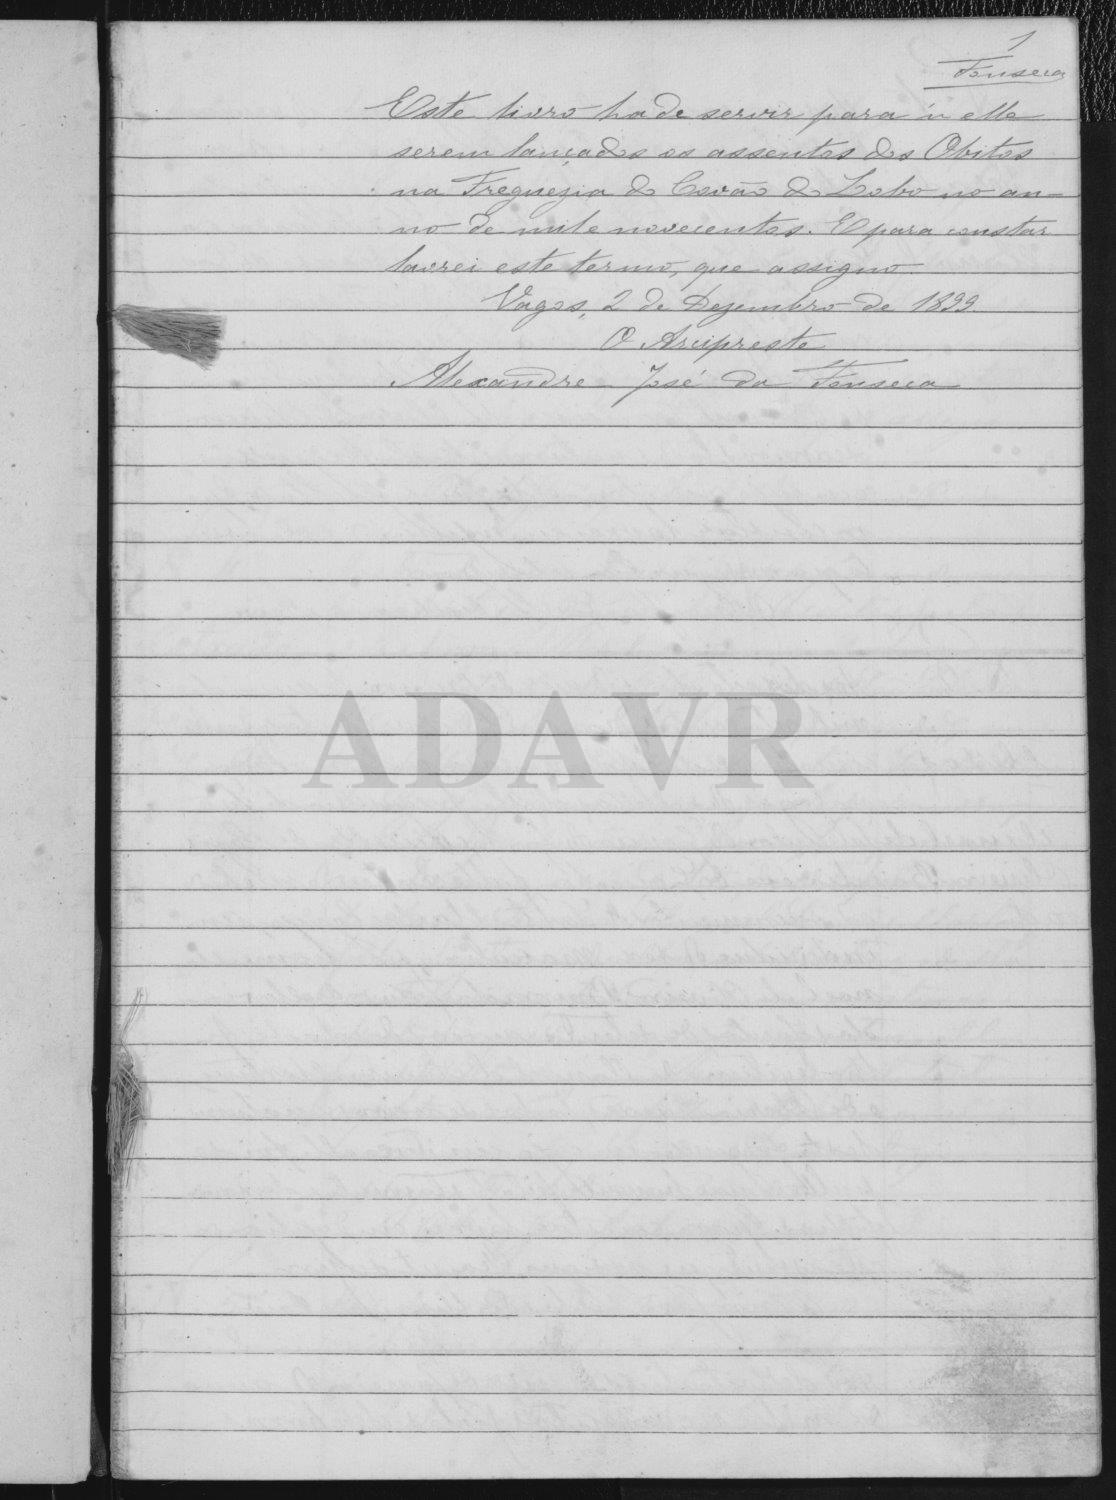 1
Fonseca
Este livro ha de servir para n'elle
serem lançados os assentos dos Obitos
na Freguezia de Covão de Lobo no an-
no de mil e novecentos. E para constar
lavrei este termo, que assigno.
Vagos, 2 de Dezembro de 1899.
O Arcipreste
Alexandre José da Fonseca
ADAVR